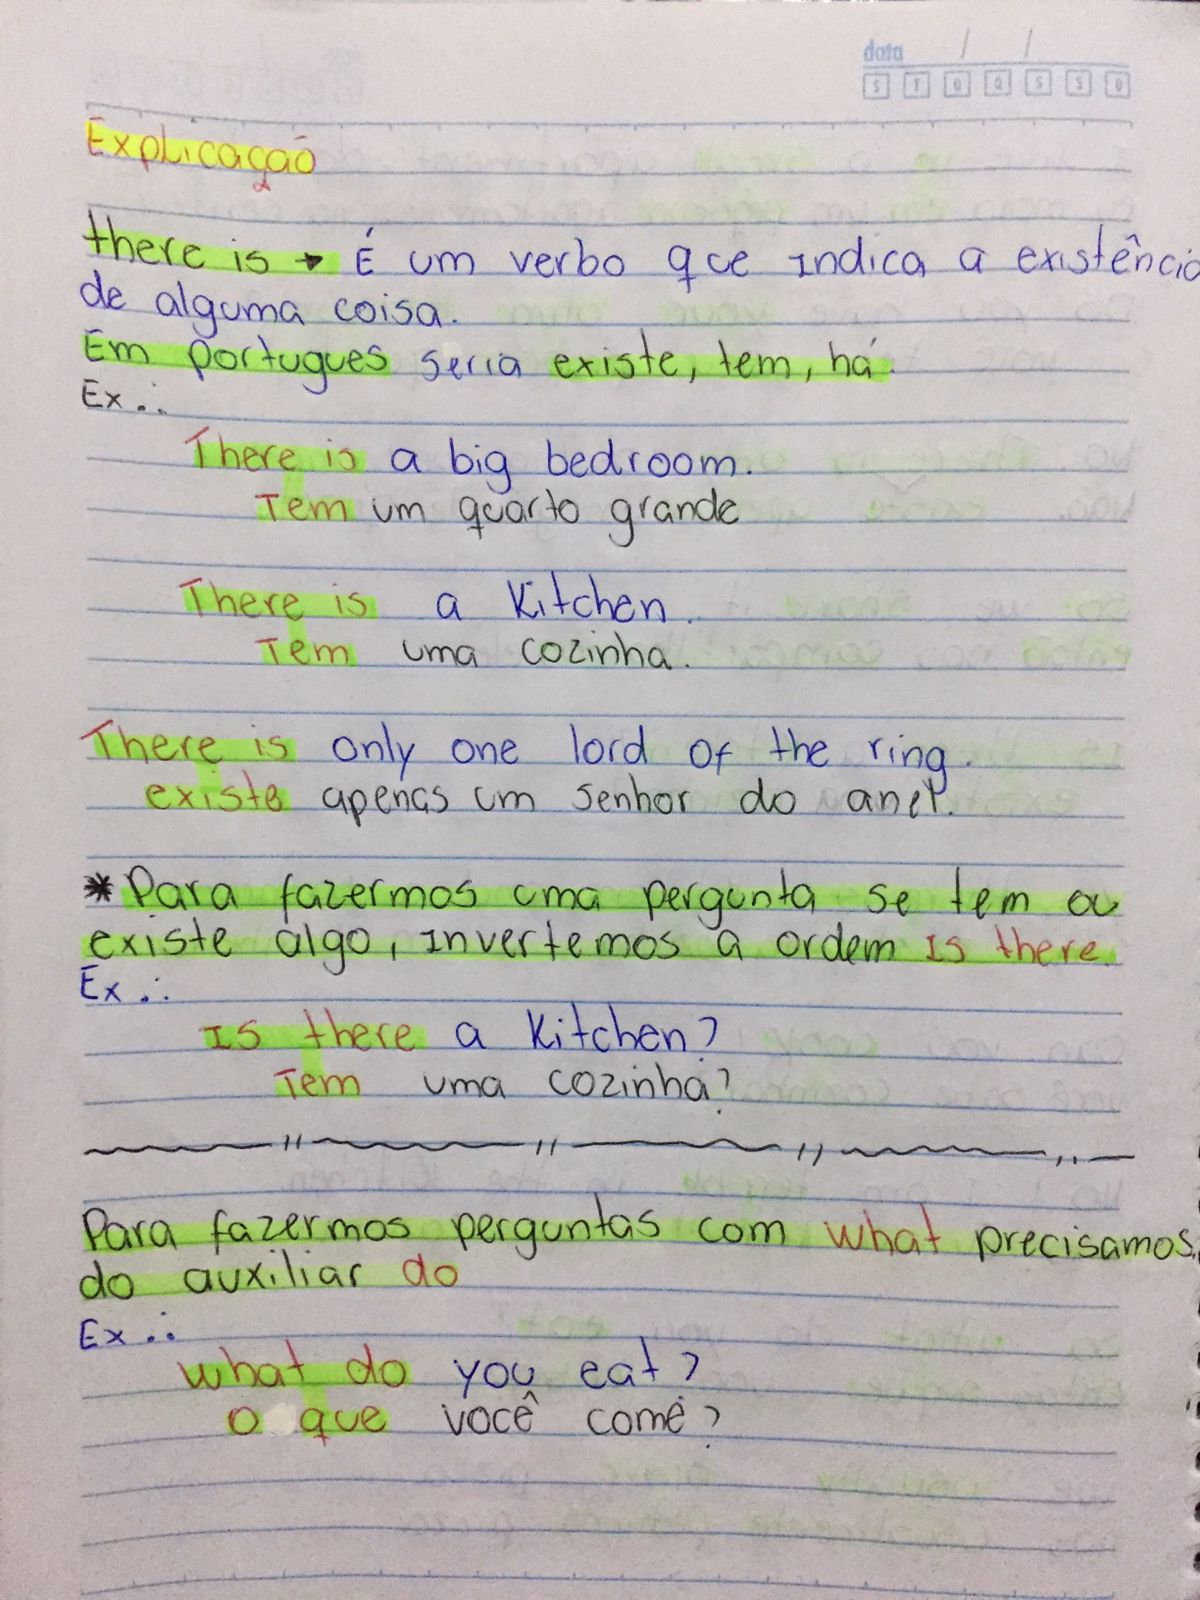 data / /
S T Q Q S S D
Explicação
there is → É um verbo que indica a existência
de alguma coisa.
Em portugues seria existe, tem, há.
Ex.:
There is a big bedroom.
Tem um quarto grande
There is a kitchen.
Tem uma cozinha.
There is only one lord of the ring.
existe apenas um senhor do anel.
* Para fazermos uma pergunta se tem ou
existe algo, invertemos a ordem is there.
Ex.:
Is there a kitchen?
Tem uma cozinha?
Para fazermos perguntas com what precisamos
do auxiliar do
Ex.:
What do you eat?
o que você come?